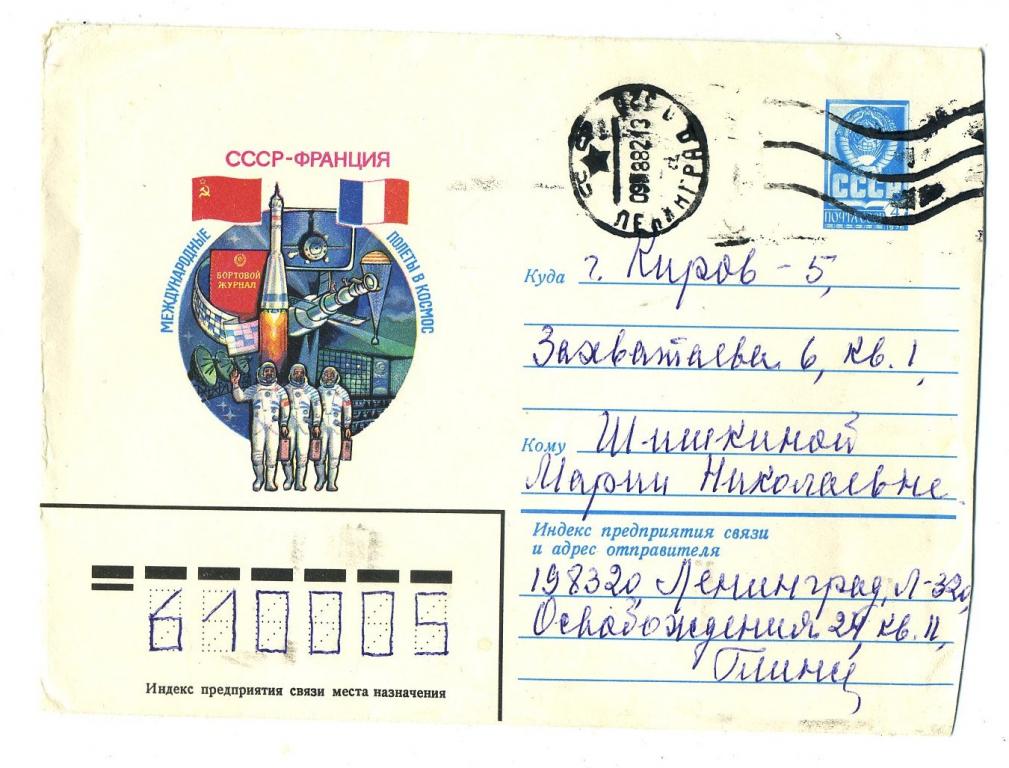 СССР-ФРАНЦИЯ
МЕЖДУНАРОДНЫЕ
ПОЛЕТЫ В КОСМОС
БОРТОВОЙ
ЖУРНАЛ
СССР
ПОЧТА СССР
Куда г. Киров - 5,
Захватаева 6, кв. 1,
Кому Шишкиной
Марии Николаевне
Индекс предприятия связи
и адрес отправителя
198320, Ленинград, Л-320,
Освобождения 24, кв. 11,
610005
Индекс предприятия связи места назначения